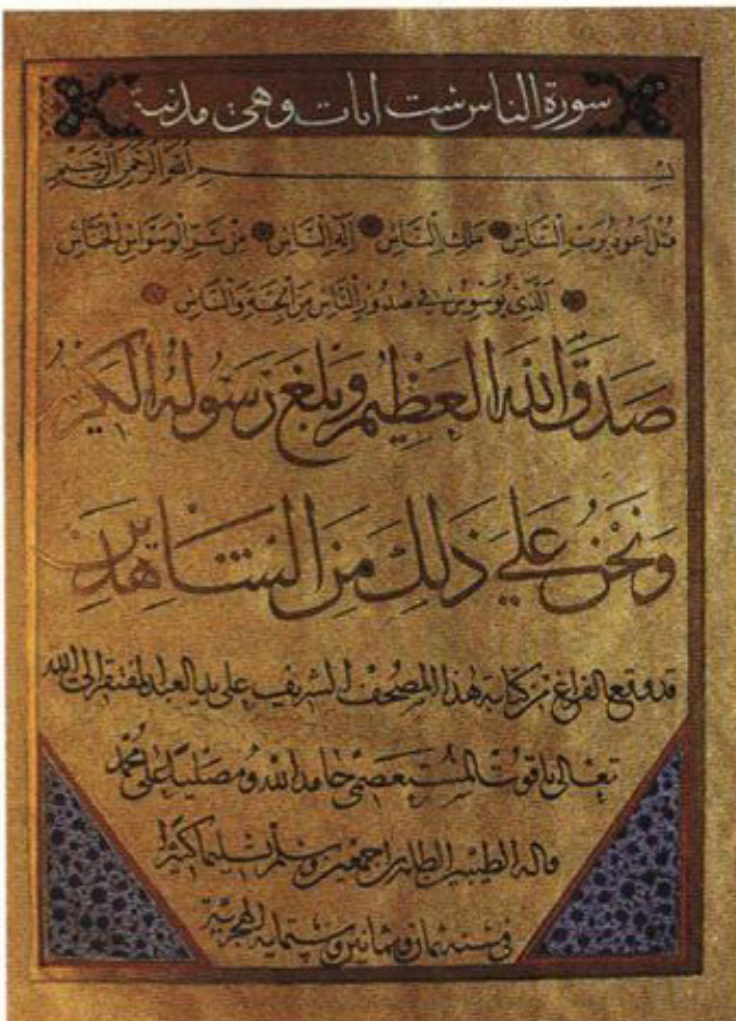 سورة الناس ست ايات وهى مدنية
بِسْمِ اللهِ الرَّحْمنِ الرَّحِيْمِ
قُلْ اَعُوذُ بِرَبِّ النَّاسِ مَلِكِ النَّاسِ اِلهِ النَّاسِ مِنْ شَرِّ الْوَسْوَاسِ الْخَنَّاسِ
اَلَّذِى يُوَسْوِسُ فِي صُدُوْرِ النَّاسِ مِنَ الْجِنَّةِ وَالنَّاسِ
صَدَقَ اللهُ الْعَظِيْمُ وَبَلَّغَ رَسُولُهُ الْكَرِيْمُ
وَنَحْنُ عَلَي ذَلِكَ مِنَ الشَّاهِدِيْنَ
قد وقع الفراغ من كتابة هذا المصحف الشريف على يد العبد المفتقر الى الله
تعالى ياقوت المستعصمي حامدا لله ومصليا على محمد
واله الطيبين الطاهرين اجمعين وسلم تسليما كثيرا
في سنة ثمان وثمانين وستمايه الهجرية